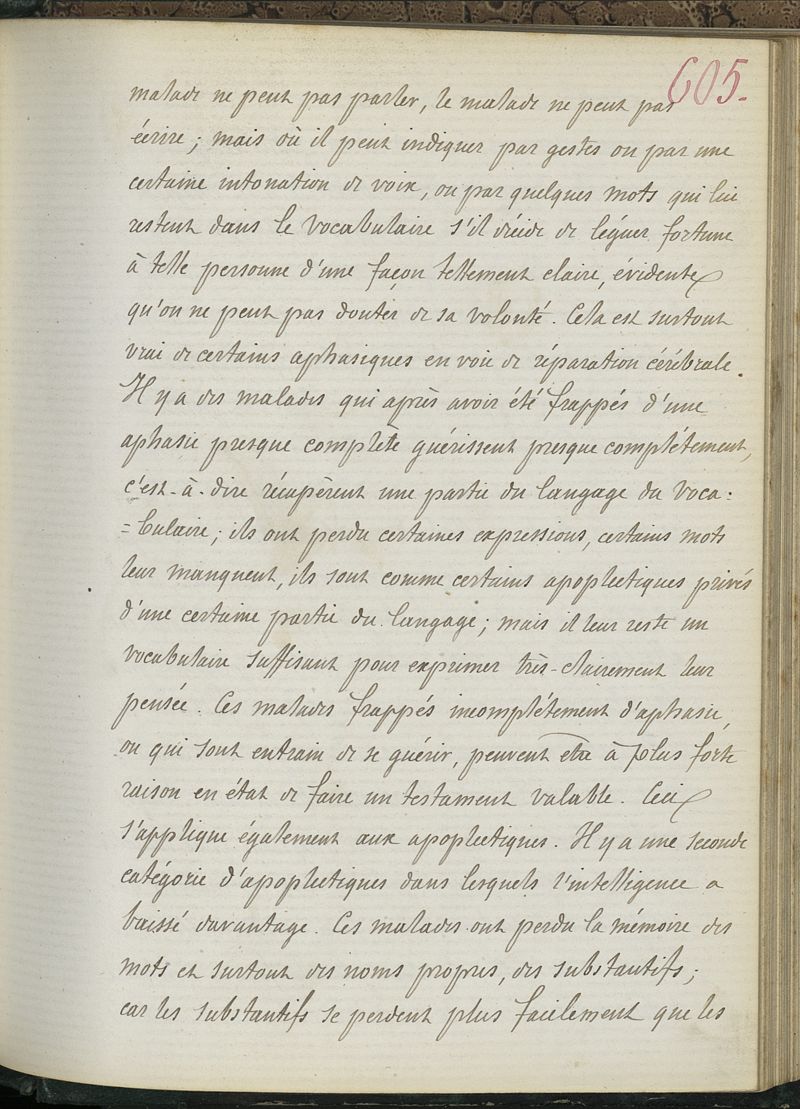 605.
malade ne peut pas parler, le malade ne peut pas
écrire ; mais où il peut indiquer par gestes ou par une
certaine intonation de voix, ou par quelques mots qui lui
restent dans le vocabulaire s'il décide de léguer fortune
à telle personne d'une façon tellement claire, évidente
qu'on ne peut pas douter de sa volonté. Cela est surtout
vrai de certains aphasiques en voie de réparation cérébrale.
Il y a des malades qui après avoir été frappés d'une
aphasie presque complète guérissent presque complétement,
c'est-à-dire récupèrent une partie du langage du voca=
=bulaire ; ils ont perdu certaines expressions, certains mots
leur manquent, ils sont comme certains apoplectiques privés
d'une certaine partie du langage ; mais il leur reste un
vocabulaire suffisant pour exprimer très-clairement leur
pensée. Ces malades frappés incomplétement d'aphasie,
ou qui sont entrain de se guérir, peuvent être à plus forte
raison en état de faire un testament valable. Ceci
s'applique également aux apoplectiques. Il y a une seconde
catégorie d'apoplectiques dans lesquels l'intelligence a
baissé davantage. Ces malades ont perdu la mémoire des
mots et surtout des noms propres, des substantifs ;
car les substantifs se perdent plus facilement que les